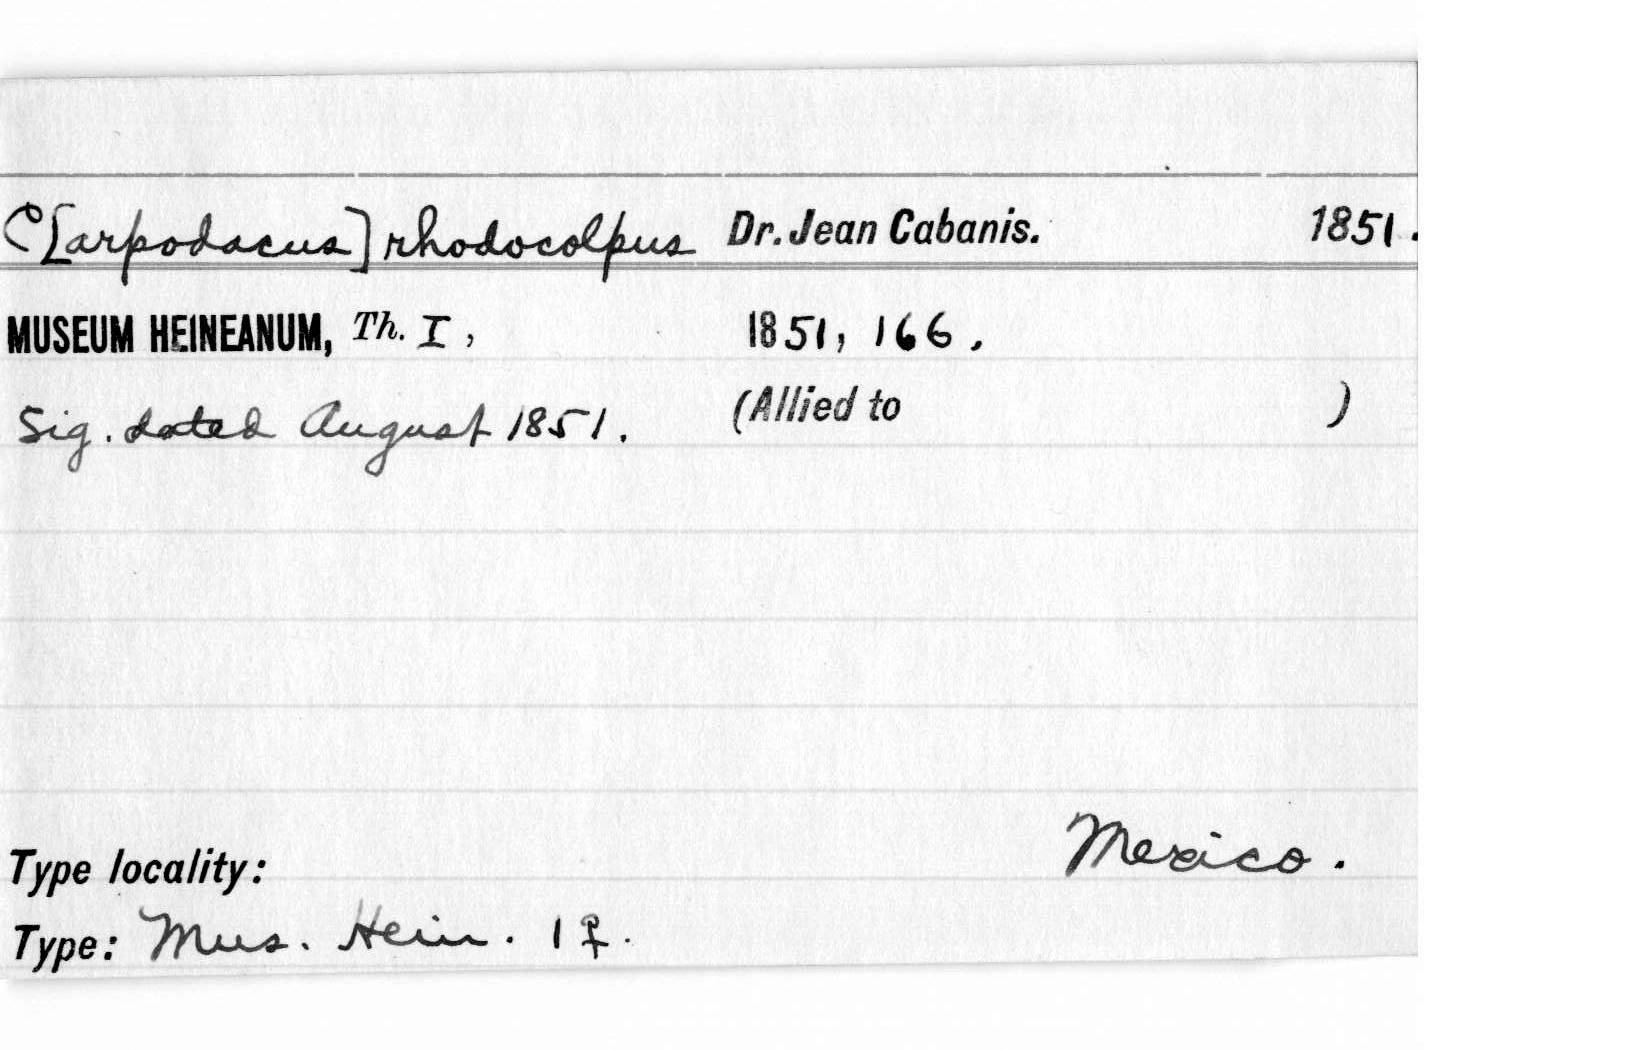 C[arpodacus] rhodocolpus Dr. Jean Cabanis. 1851.
MUSEUM HEINEANUM, Th. I, 1851, 166.
Sig. dated August 1851. (Allied to )
Type locality: Mexico.
Type: Mus. Hein. 1 ♀.